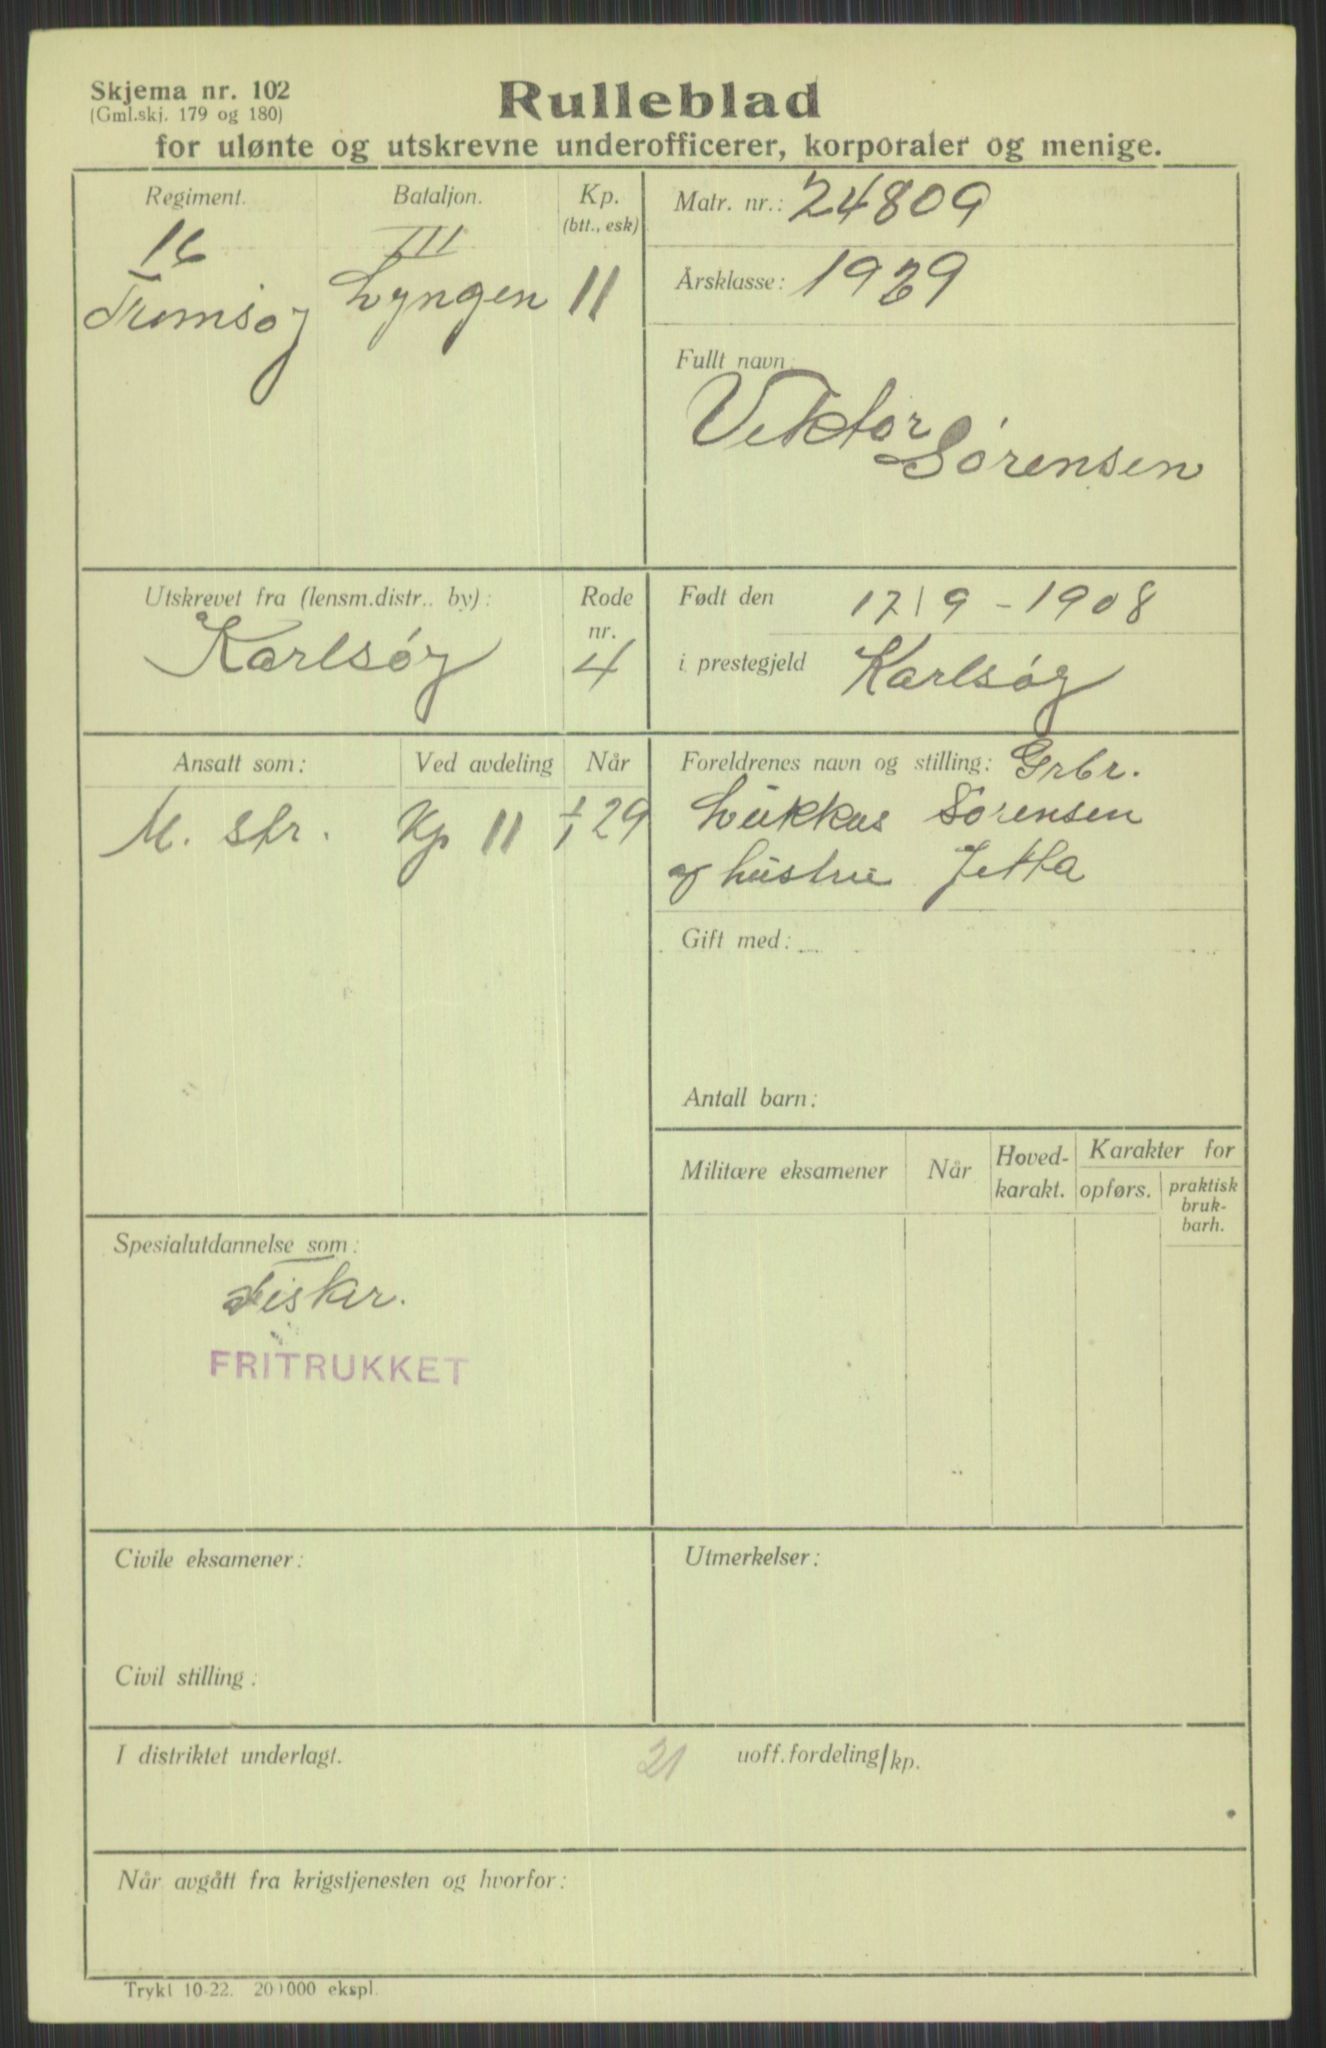 Skjema nr. 102
(Gml.skj. 179 og 180)
Rulleblad
for ulønte og utskrevne underofficerer, korporaler og menige.
Regiment.
16
Tromsøy
Bataljon.
III
Lyngen
Kp.
(btt., esk)
11
Matr. nr.: 24809
Årsklasse: 1929
Fullt navn:
Viktor
Sørensen
Utskrevet fra (lensm.distr.. by):
Karlsøy
Rode
nr.
4
Født den 17/9 - 1908
i prestegjeld Karlsøy
Ansatt som:
M. str.
Ved avdeling
Kp 11
Når
1/1 29
Foreldrenes navn og stilling: Grbr.
Lukkas Sørensen
og hustru Jetta
Gift med:
Antall barn:
Militære eksamener
Når
Hoved-
karakt.
Karakter for
opførs.
praktisk
bruk-
barh.
Spesialutdannelse som:
Fisker.
FRITRUKKET
Civile eksamener:
Civil stilling:
Utmerkelser:
I distriktet underlagt. 21 uoff.fordeling/kp.
Når avgått fra krigstjenesten og hvorfor:
Trykt 10-22. 200000 ekspl.